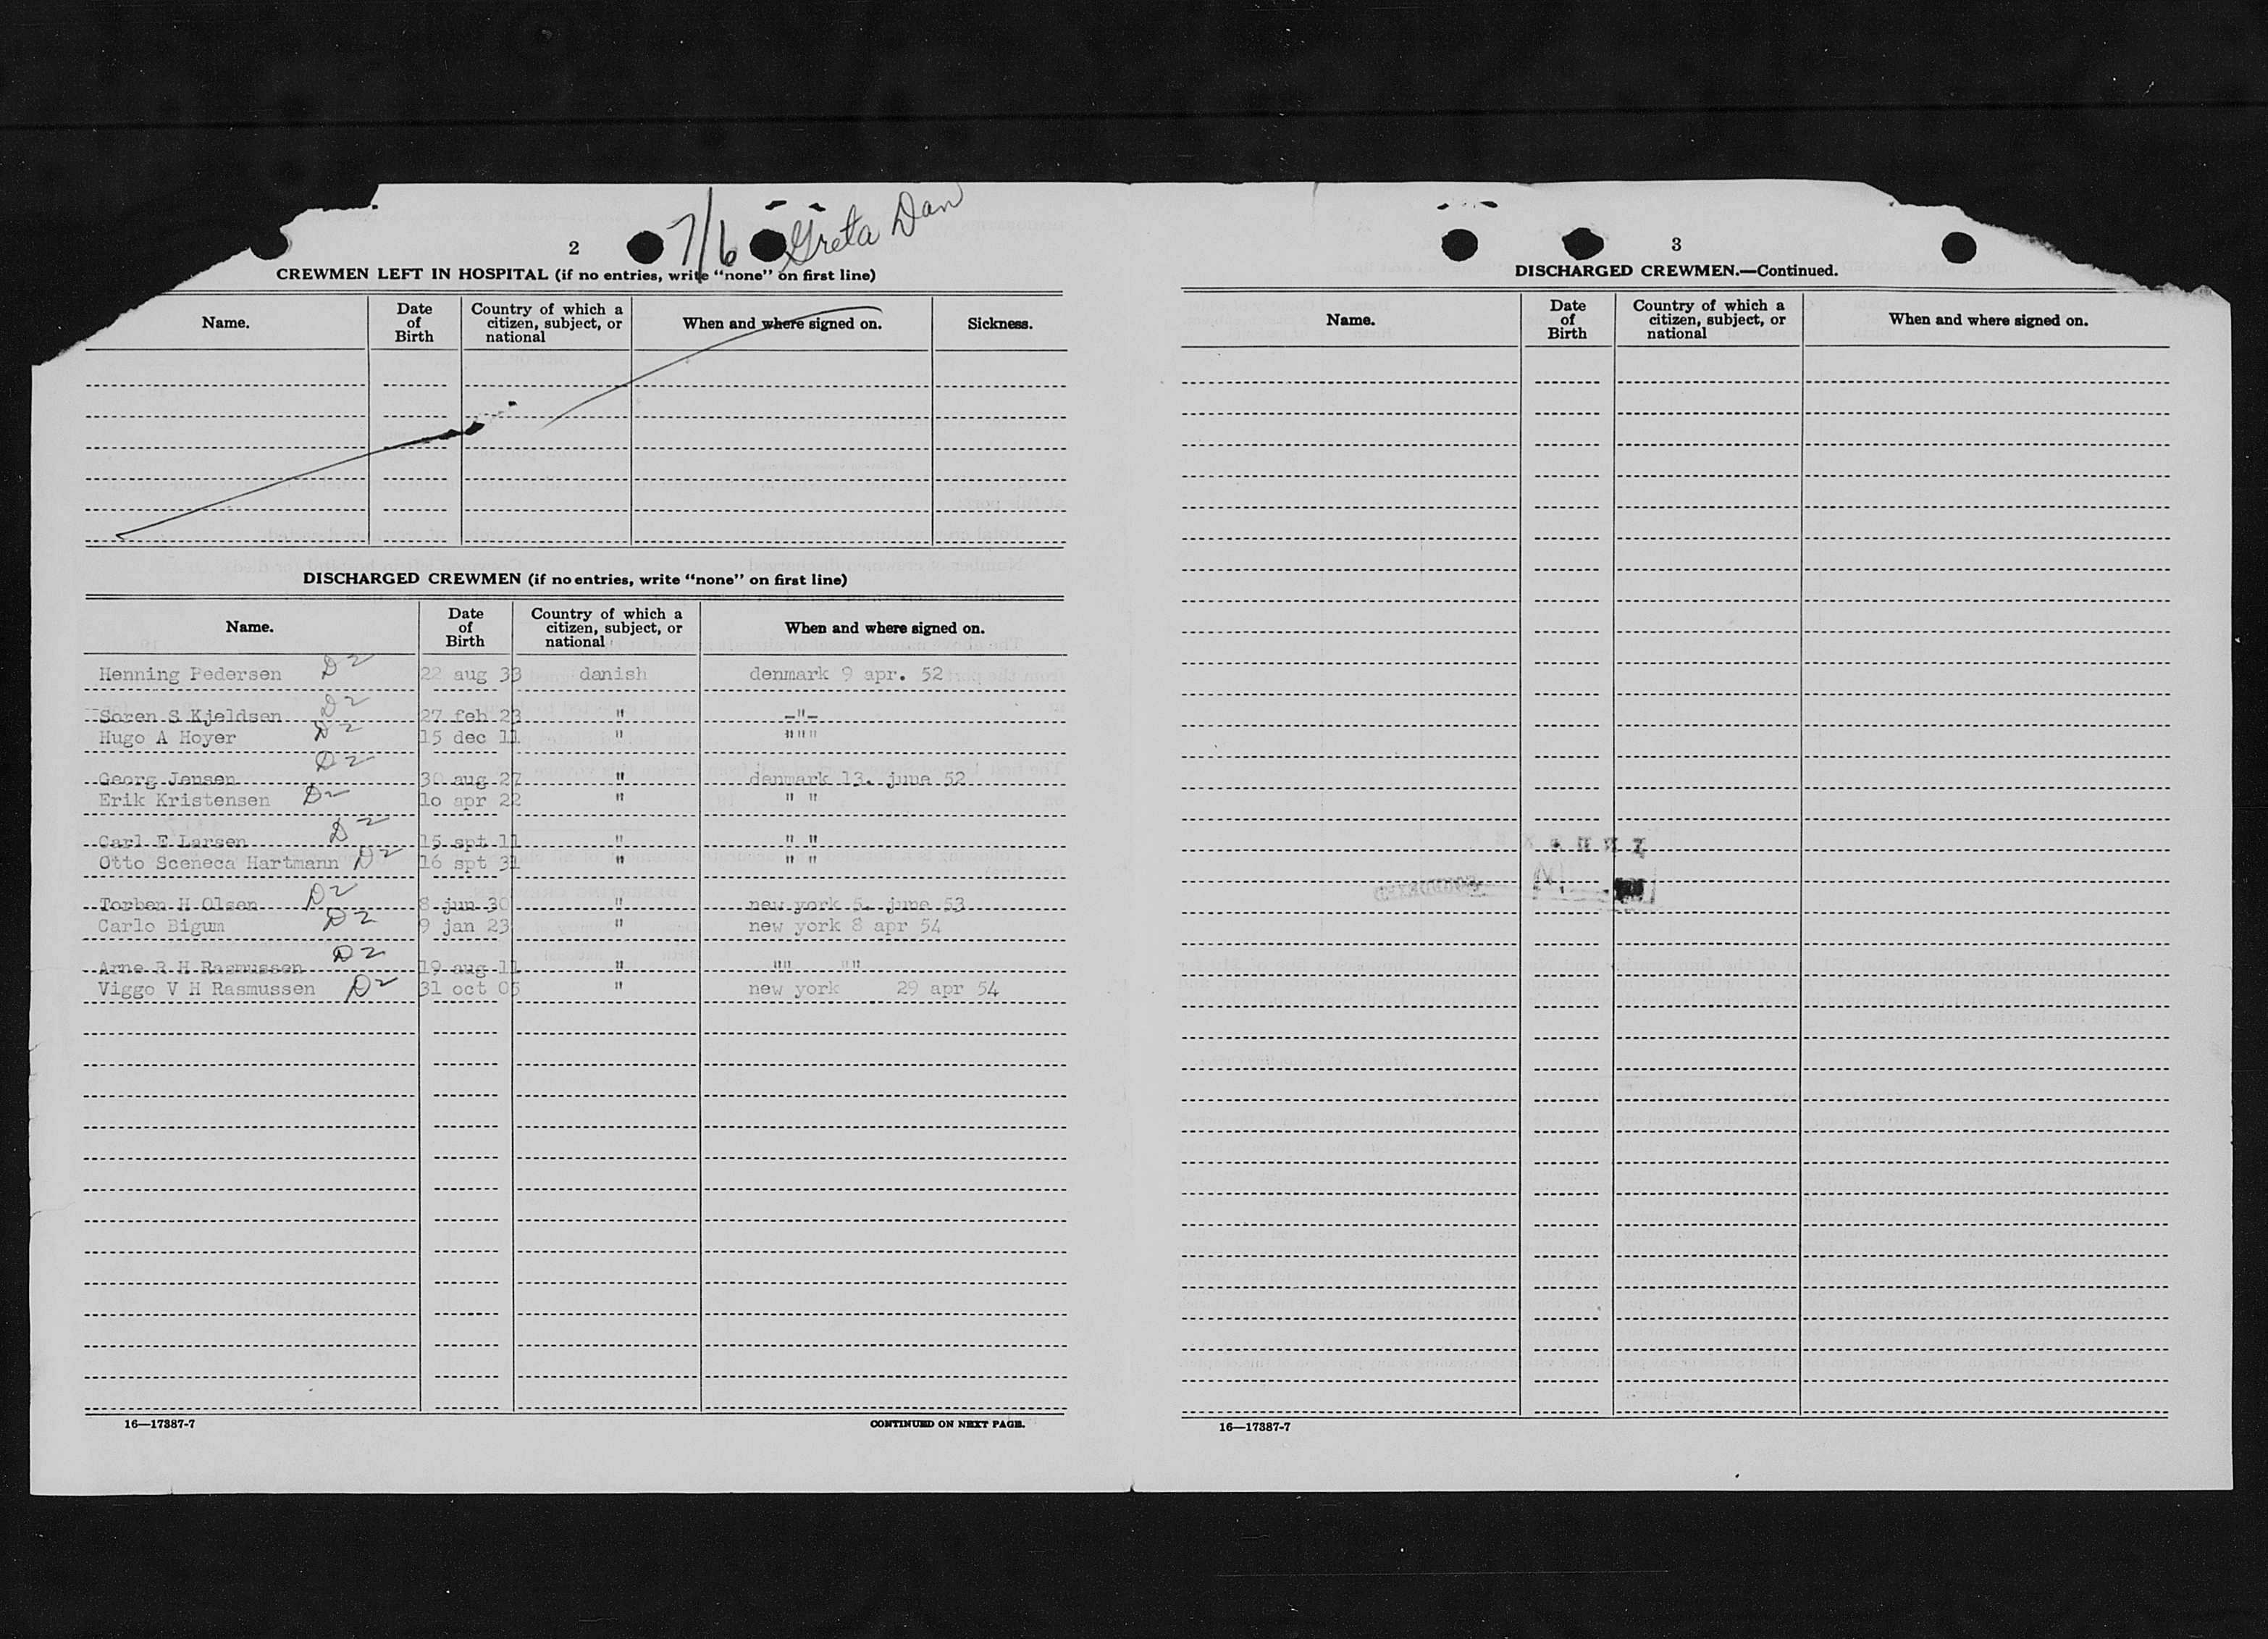 2
7/6 Greta Dan
CREWMEN LEFT IN HOSPITAL (if no entries, write "none" on first line)
Name. Date of Birth Country of which a citizen, subject, or national When and where signed on. Sickness.
DISCHARGED CREWMEN (if no entries, write "none" on first line)
Name. Date of Birth Country of which a citizen, subject, or national When and where signed on.
Henning Pedersen D2 22 aug 33 danish denmark 9 apr. 52
Soren S Kjeldsen D2 27 feb 23 " -"-
Hugo A Hoyer D2 15 dec 11 " """
Georg Jensen D2 30 aug 27 " denmark 13. june 52
Erik Kristensen D2 1o apr 22 " " "
Carl E Larsen D2 15 spt 11 " " "
Otto Sceneca Hartmann D2 16 spt 31 " " "
Torben H Olsen D2 8 jun 30 " new york 5. june 53
Carlo Bigum D2 9 jan 23 " new york 8 apr 54
Arne R H Rasmussen D2 19 aug 11 " "" ""
Viggo V H Rasmussen D2 31 oct 05 " new york 29 apr 54
16—17387-7 CONTINUED ON NEXT PAGE.
3
DISCHARGED CREWMEN.—Continued.
Name. Date of Birth Country of which a citizen, subject, or national When and where signed on.
16—17387-7